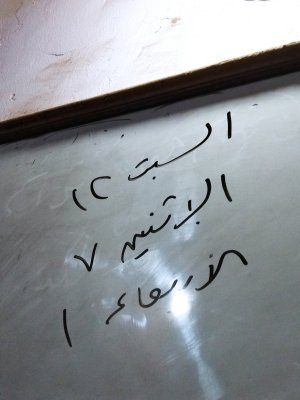 السبت ١٢
الاثنين ٧
الأربعاء ١